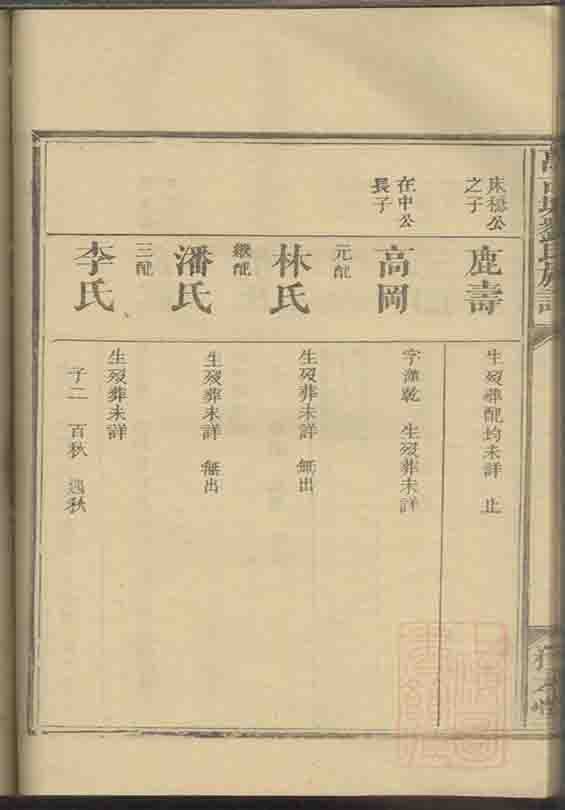 床穩公
之子
鹿壽
生歿葬配均未詳 止
在中公
長子
高岡
字澤乾 生歿葬未詳
元配
林氏
生歿葬未詳 無出
繼配
潘氏
生歿葬未詳 無出
三配
李氏
生歿葬未詳
子二 百秋 遇秋